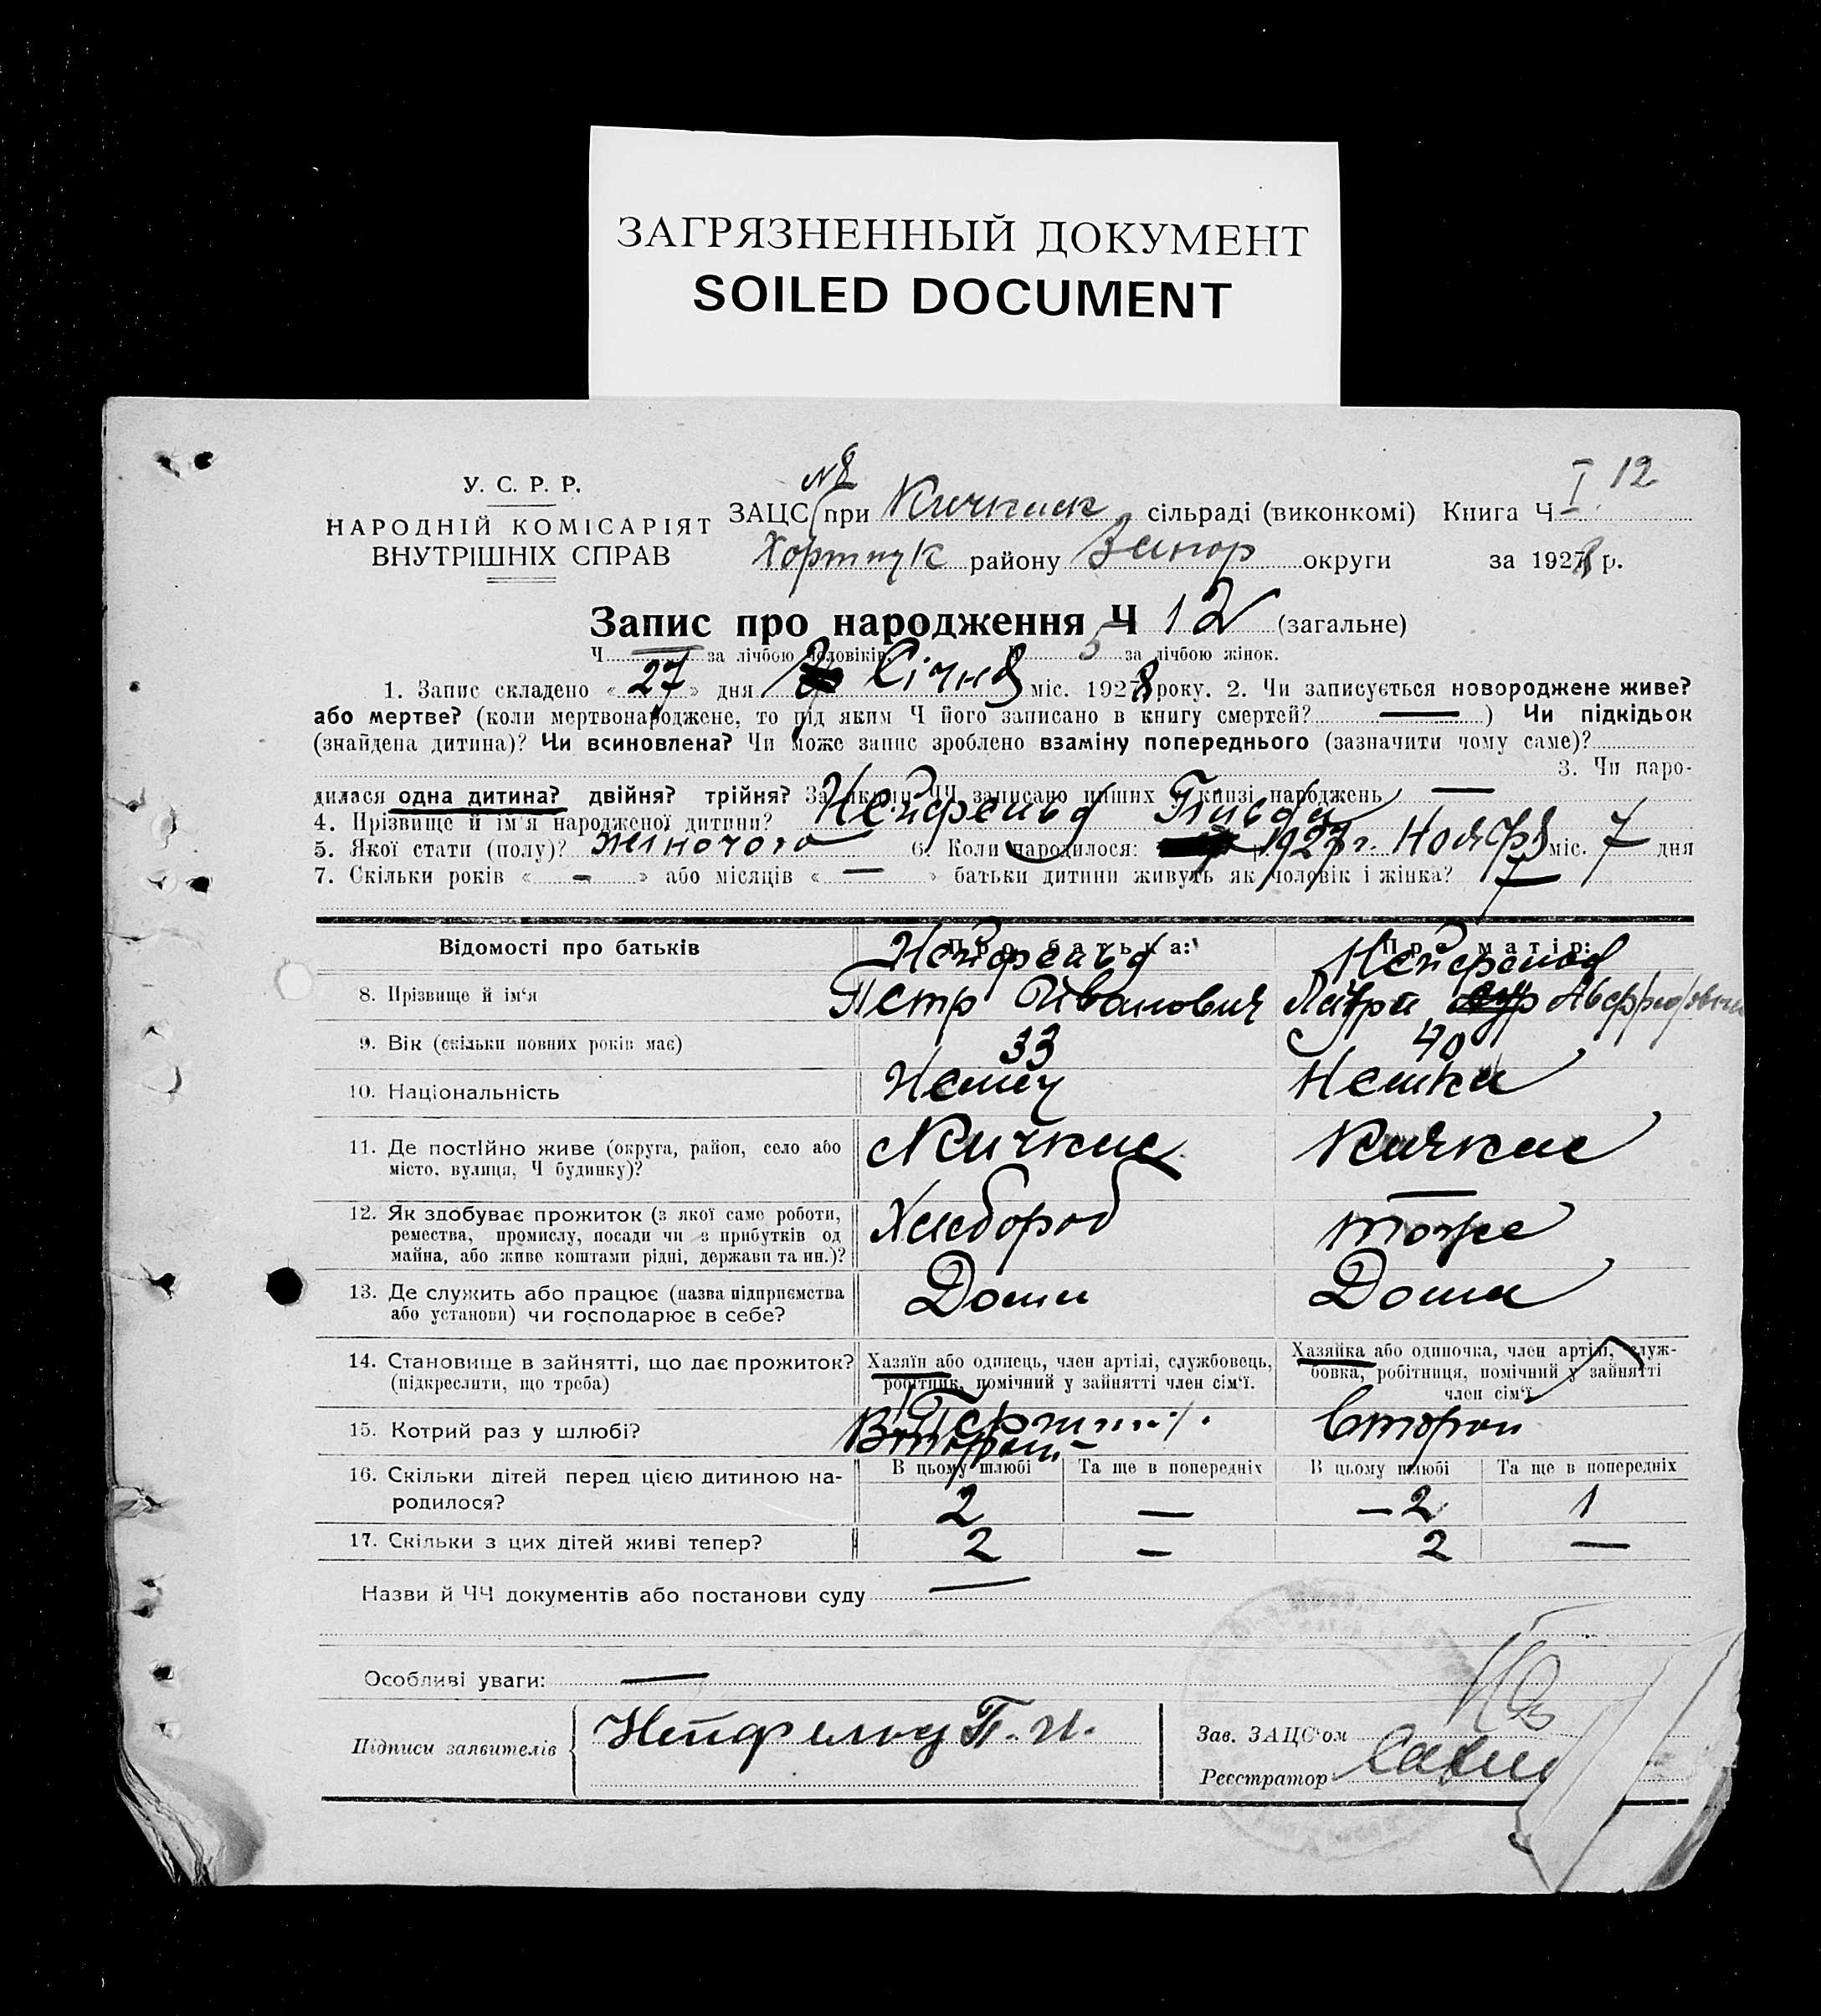 ЗАГРЯЗНЕННЫЙ ДОКУМЕНТ
SOILED DOCUMENT
№ 8
I 12
У. С. Р. Р.
НАРОДНІЙ КОМІСАРІЯТ
ВНУТРІШНІХ СПРАВ
ЗАЦС при Кичкаск сільраді (виконкомі) Книга Ч
району Запор округи за 1928 р.
Запис про народження Ч 12 (загальне)
Ч — за лічбою чоловіків. Ч 5 за лічбою жінок.
1. Запис складено « 27 » дня Січня міс. 1928 року. 2. Чи записується новороджене живе?
або мертве? (коли мертвонароджене, то під яким Ч його записано в книгу смертей? — ) Чи підкідьок
(знайдена дитина)? Чи всиновлена? Чи може запис зроблено взаміну попереднього (зазначити чому саме)?
3. Чи наро-
дилася одна дитина? двійня? трійня? За якими ЧЧ записано инших у книзі народжень —
4. Прізвище й ім'я народженої дитини? Нейфельд
5. Якої стати (полу)? жіночого 6. Коли народилося: 1927 г. Ноября міс. 7 дня
7. Скільки років « - » або місяців « — » батьки дитини живуть як чоловік і жінка? 7
Відомості про батьків Про батька: Про матір:
8. Прізвище й ім'я Нейфельд Петр Иванович Нейфельд
9. Вік (скільки повних років має) 33 40
10. Національність Немец Немка
11. Де постійно живе (округа, район, село або Кичкас Кичкас
місто, вулиця, Ч будинку)?
12. Як здобуває прожиток (з якої саме роботи, Хлебороб тоже
ремества, промислу, посади чи з прибутків од
майна, або живе коштами рідні, держави та ин.)?
13. Де служить або працює (назва підприємства Дома Дома
або установи) чи господарює в себе?
14. Становище в зайнятті, що дає прожиток? Хазяїн або одинець, член артілі, службовець, Хазяйка або одиночка, член артілі, служ-
(підкреслити, що треба) робітник, помічний у зайнятті член сім'ї. бовка, робітниця, помічний у зайнятті
член сім'ї
15. Котрий раз у шлюбі? Второй
16. Скільки дітей перед цією дитиною на- В цьому шлюбі Та ще в попередніх В цьому шлюбі Та ще в попередніх
родилося? 2 — — 2 1
17. Скільки з цих дітей живі тепер? 2 — 2 —
Назви й ЧЧ документів або постанови суду —
Особливі уваги: —
Підписи заявителів Нейфельд П. И.
Зав. ЗАЦС'ом
Реєстратор